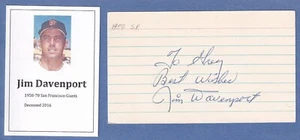 Jim Davenport
1958-70 San Francisco Giants
Deceased 2016
1958 SF
To Greg
Best Wishes
Jim Davenport